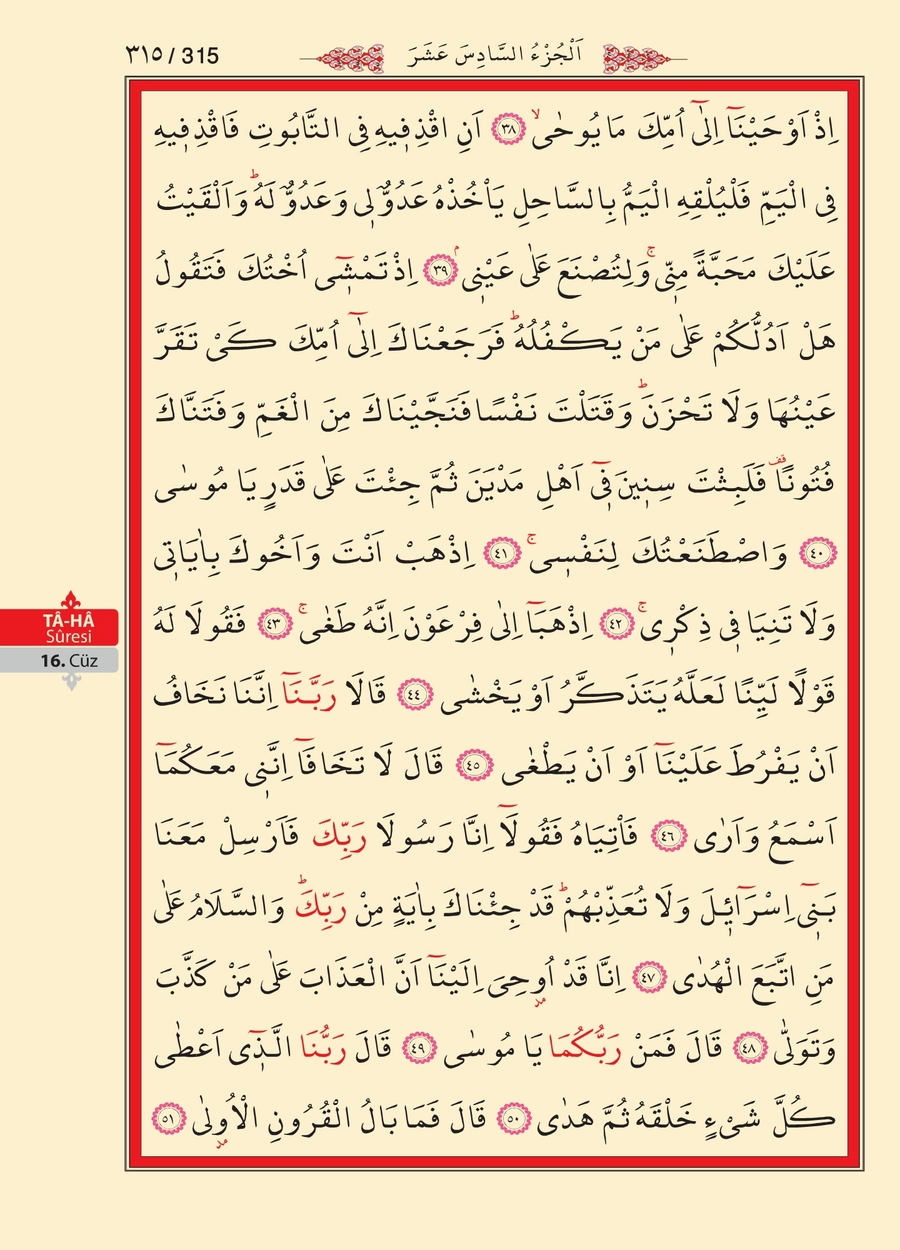 ٣١٥ / 315
اَلْجُزْءُ السَّادِسَ عَشَرَ
اِذْ اَوْحَيْنَٓا اِلٰٓى اُمِّكَ مَا يُوحٰىۙ ﴿٣٨﴾ اَنِ اقْذِفٖيهِ فِى التَّابُوتِ فَاقْذِفٖيهِ
فِى الْيَمِّ فَلْيُلْقِهِ الْيَمُّ بِالسَّاحِلِ يَاْخُذْهُ عَدُوٌّ لٖى وَعَدُوٌّ لَهُۜ وَاَلْقَيْتُ
عَلَيْكَ مَحَبَّةً مِنّٖىۚ وَلِتُصْنَعَ عَلٰى عَيْنٖىۢ ﴿٣٩﴾ اِذْ تَمْشٖٓى اُخْتُكَ فَتَقُولُ
هَلْ اَدُلُّكُمْ عَلٰى مَنْ يَكْفُلُهُۜ فَرَجَعْنَاكَ اِلٰٓى اُمِّكَ كَىْ تَقَرَّ
عَيْنُهَا وَلَا تَحْزَنَۜ وَقَتَلْتَ نَفْسًا فَنَجَّيْنَاكَ مِنَ الْغَمِّ وَفَتَنَّاكَ
فُتُونًاࣞ فَلَبِثْتَ سِنٖينَ فٖٓى اَهْلِ مَدْيَنَ ثُمَّ جِئْتَ عَلٰى قَدَرٍ يَا مُوسٰى
﴿٤٠﴾ وَاصْطَنَعْتُكَ لِنَفْسٖىۚ ﴿٤١﴾ اِذْهَبْ اَنْتَ وَاَخُوكَ بِاٰيَاتٖى
وَلَا تَنِيَا فٖى ذِكْرٖىۚ ﴿٤٢﴾ اِذْهَبَٓا اِلٰى فِرْعَوْنَ اِنَّهُ طَغٰىۚ ﴿٤٣﴾ فَقُولَا لَهُ
قَوْلًا لَيِّنًا لَعَلَّهُ يَتَذَكَّرُ اَوْ يَخْشٰى ﴿٤٤﴾ قَالَا رَبَّنَٓا اِنَّنَا نَخَافُ
اَنْ يَفْرُطَ عَلَيْنَٓا اَوْ اَنْ يَطْغٰى ﴿٤٥﴾ قَالَ لَا تَخَافَٓا اِنَّنٖى مَعَكُمَٓا
اَسْمَعُ وَاَرٰى ﴿٤٦﴾ فَاْتِيَاهُ فَقُولَٓا اِنَّا رَسُولَا رَبِّكَ فَاَرْسِلْ مَعَنَا
بَنٖٓى اِسْرَٓائٖلَ وَلَا تُعَذِّبْهُمْۜ قَدْ جِئْنَاكَ بِاٰيَةٍ مِنْ رَبِّكَۜ وَالسَّلَامُ عَلٰى
مَنِ اتَّبَعَ الْهُدٰى ﴿٤٧﴾ اِنَّا قَدْ اُوحِىَ اِلَيْنَٓا اَنَّ الْعَذَابَ عَلٰى مَنْ كَذَّبَ
وَتَوَلّٰى ﴿٤٨﴾ قَالَ فَمَنْ رَبُّكُمَا يَا مُوسٰى ﴿٤٩﴾ قَالَ رَبُّنَا الَّذٖٓى اَعْطٰى
كُلَّ شَىْءٍ خَلْقَهُ ثُمَّ هَدٰى ﴿٥٠﴾ قَالَ فَمَا بَالُ الْقُرُونِ الْاُولٰى ﴿٥١﴾
TÂ-HÂ
Sûresi
16. Cüz